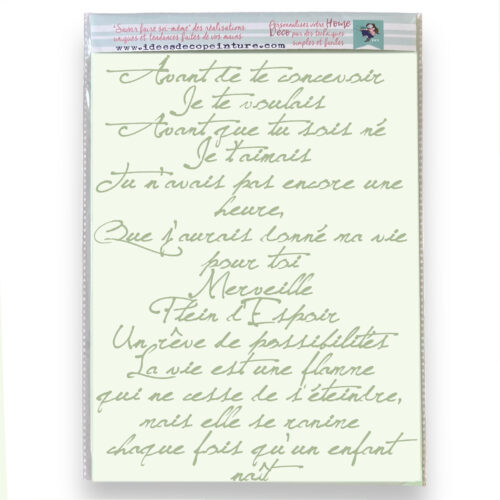 "Savoir faire soi-même" des réalisations
uniques et tendances faites de vos mains
www.ideesdecopeinture.com
Personnalisez votre Home
Déco par des techniques
simples et faciles
Avant de te concevoir
Je te voulais
Avant que tu sois né
Je t'aimais
Tu n'avais pas encore une
heure,
Que j'aurais donné ma vie
pour toi
Merveille
Plein l'Espoir
Un rêve de possibilités
La vie est une flamme
qui ne cesse de s'éteindre,
mais elle se ranime
chaque fois qu'un enfant
naît